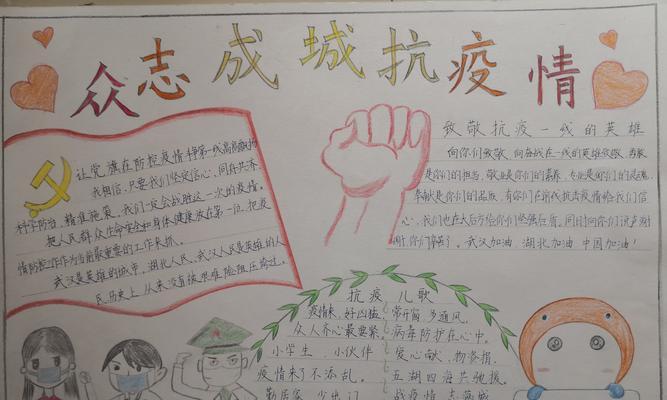 众志成城抗疫情
让党旗在防控疫情斗争第一线高高飘扬
我相信,只要我们坚定信心,同舟共济,
科学防治,精准施策,我们一定会战胜这一次的疫情,
把人民群众生命安全和身体健康放在第一位,把疫
情防控工作作为当前最重要的工作来抓。
武汉是英雄的城市,湖北人民、武汉人民是英雄的人
民,历史上从来没有被艰难险阻压垮过。
致敬抗疫一线的英雄
向你们致敬,向奋战在一线的英雄致敬,
是你们的担当,敬业是你们的素养,专业是你们的
奉献是你们的品质,有你们在前线抗击疫情给我们信
心,我们也在大后方给你们坚强后盾,同时向你们说声谢
谢,你们辛苦了。武汉加油 湖北加油 中国加油!
抗疫儿歌
疫情来,好凶猛,常开窗 多通风,
众人齐心最要紧。病毒防护在心中。
小学生 小伙伴 爱心献,物资捐,
疫情来了不添乱。五湖四海共驰援。
勤居家 少出门 战疫情